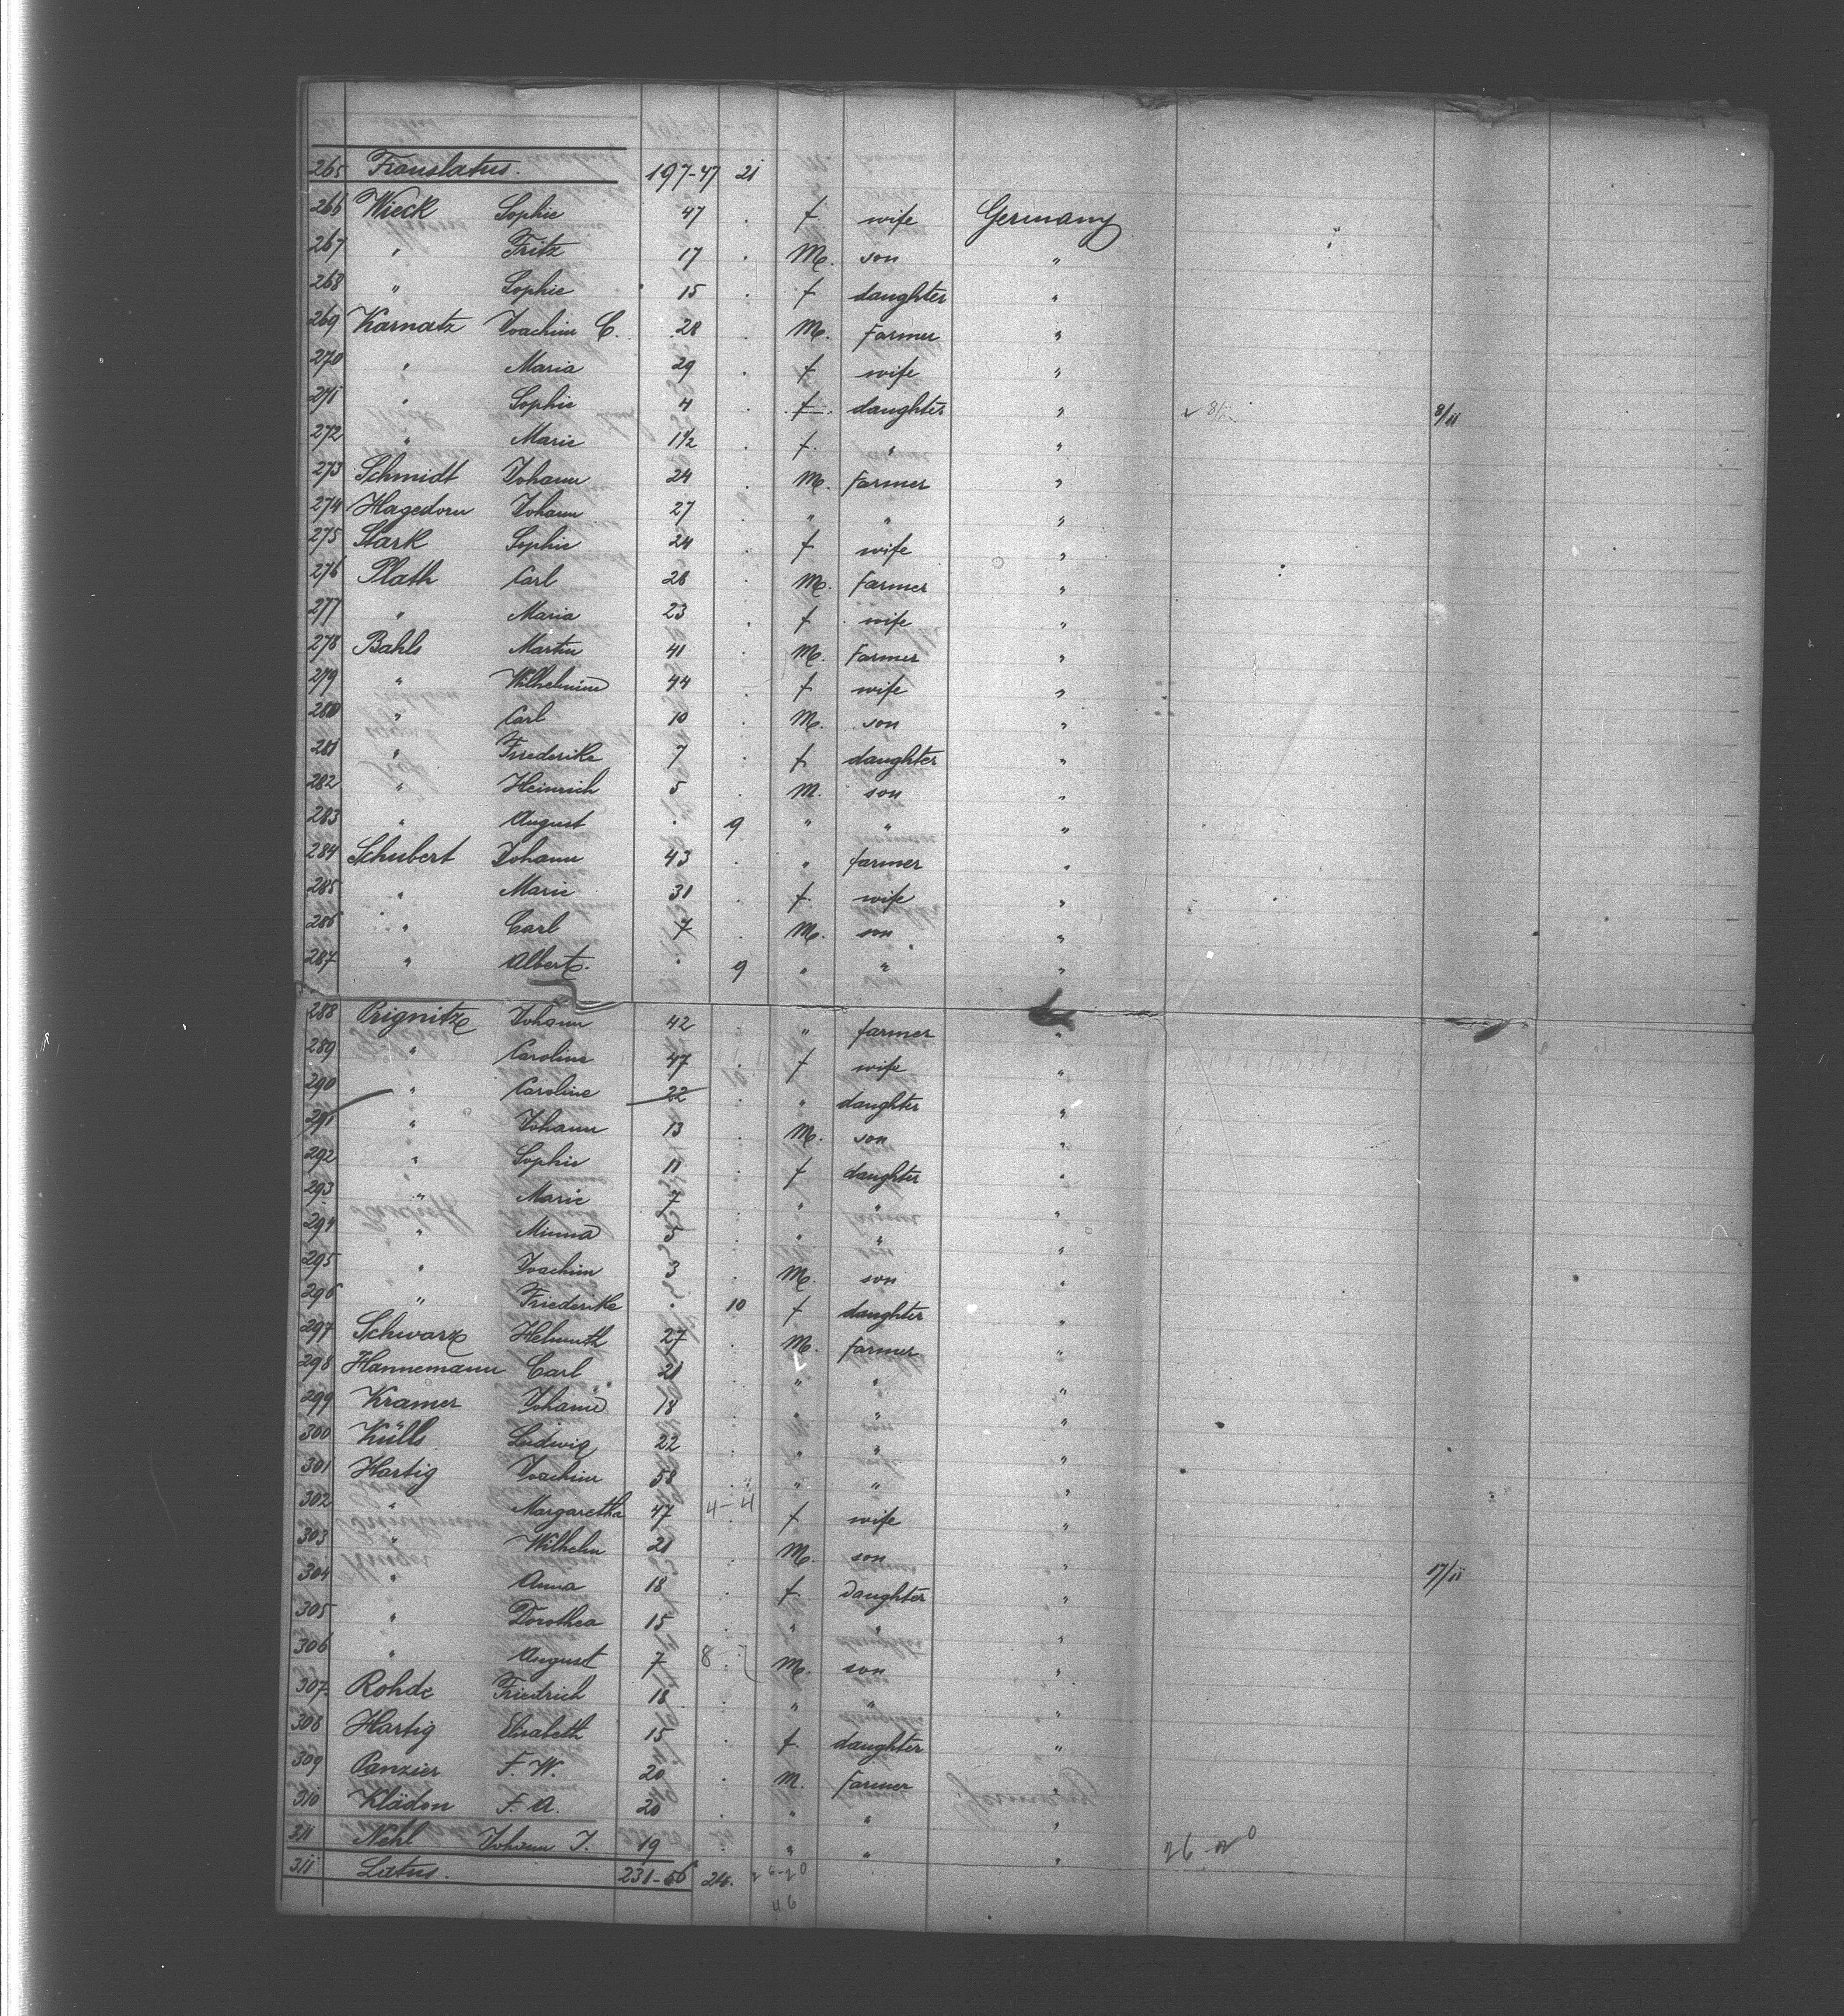 265 Translatus. 197-47 21
266 Wieck Sophie 47 . f wife Germany
267 " Fritz 17 . M. son "
268 " Sophie 15 . f daughter "
269 Karnatz Joachim C. 28 . M. Farmer "
270 " Maria 29 . f wife "
271 " Sophie 4 . f. daughter " 8/11 8/11
272 " Marie 1 1/2 . f. " "
273 Schmidt Johann 24 . M. Farmer "
274 Hagedorn Johann 27 . " " "
275 Stark Sophie 24 . f wife "
276 Plath Carl 28 . M. farmer "
277 " Maria 23 . f wife "
278 Bahls Martin 41 . M. Farmer "
279 " Wilhelmine 44 . f wife "
280 " Carl 10 . M. son "
281 " Friederike 7 . f daughter "
282 " Heinrich 5 . M. son "
283 " August . 9 " " "
284 Schubert Johann 43 . " farmer "
285 " Marie 31 . f. wife "
286 " Carl 7 . M. son "
287 " Albert . 9 " " "
288 Prignitz Johann 42 . " farmer "
289 " Caroline 47 . f wife "
290 " Caroline 22 . " daughter "
291 " Johann 13 . M. son "
292 " Sophie 11 . f daughter "
293 " Marie 7 . " " "
294 " Minna 5 . " " "
295 " Joachim 3 . M. son "
296 " Friederike . 10 f daughter "
297 Schwarz Helmuth 27 . M. farmer "
298 Hannemann Carl 21 . " " "
299 Kramer Johann 18 . " " "
300 Külls Ludwig 22 . " " "
301 Hartig Joachim 58 . " " "
302 " Margaretha 47 4-4 f wife "
303 " Wilhelm 21 . M. son "
304 " Anna 18 . f daughter " 17/11
305 " Dorothea 15 . " " "
306 " August 7 8 . M. son "
307. Rohde Friedrich 18 . " " "
308 Hartig Elisabeth 15 . f. daughter "
309 Panzier F. W. 20 . M. Farmer "
310 Klädon F. A. 20 . " " "
311 Nehl Johann J. 19 . " " "
311 Latus. 231-56 24. 26-20
46